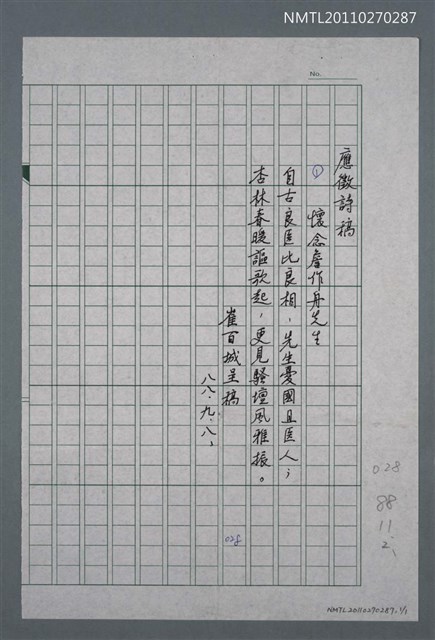 NMTL20110270287
No.
應徵詩稿
① 懷念詹作舟先生
自古良医比良相,先生憂國且医人;
杏林春暖謳歌起,更見騷壇風雅振。
崔百城呈稿
八八、九、八、
028
028
88
11
2、
NMTL20110270287、1/1